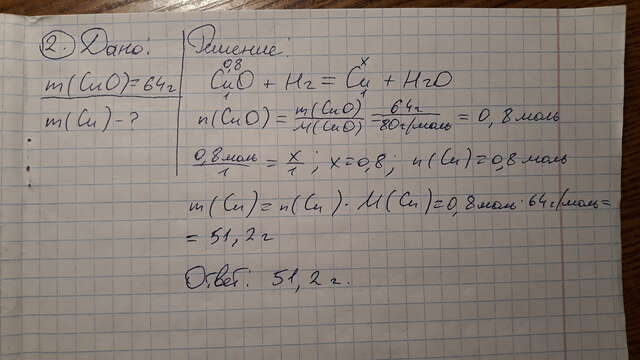 2. Дано:
m(CuO)=64г
m(Cu)-?
Решение:
0,8 x
CuO + H2 = Cu + H2O
1 1
n(CuO) = m(CuO)/M(CuO) = 64г/80г/моль = 0,8 моль
0,8моль/1 = x/1; x=0,8; n(Cu)=0,8 моль
m(Cu)=n(Cu)·M(Cu)=0,8моль·64г/моль=
= 51,2 г
Ответ: 51,2 г.